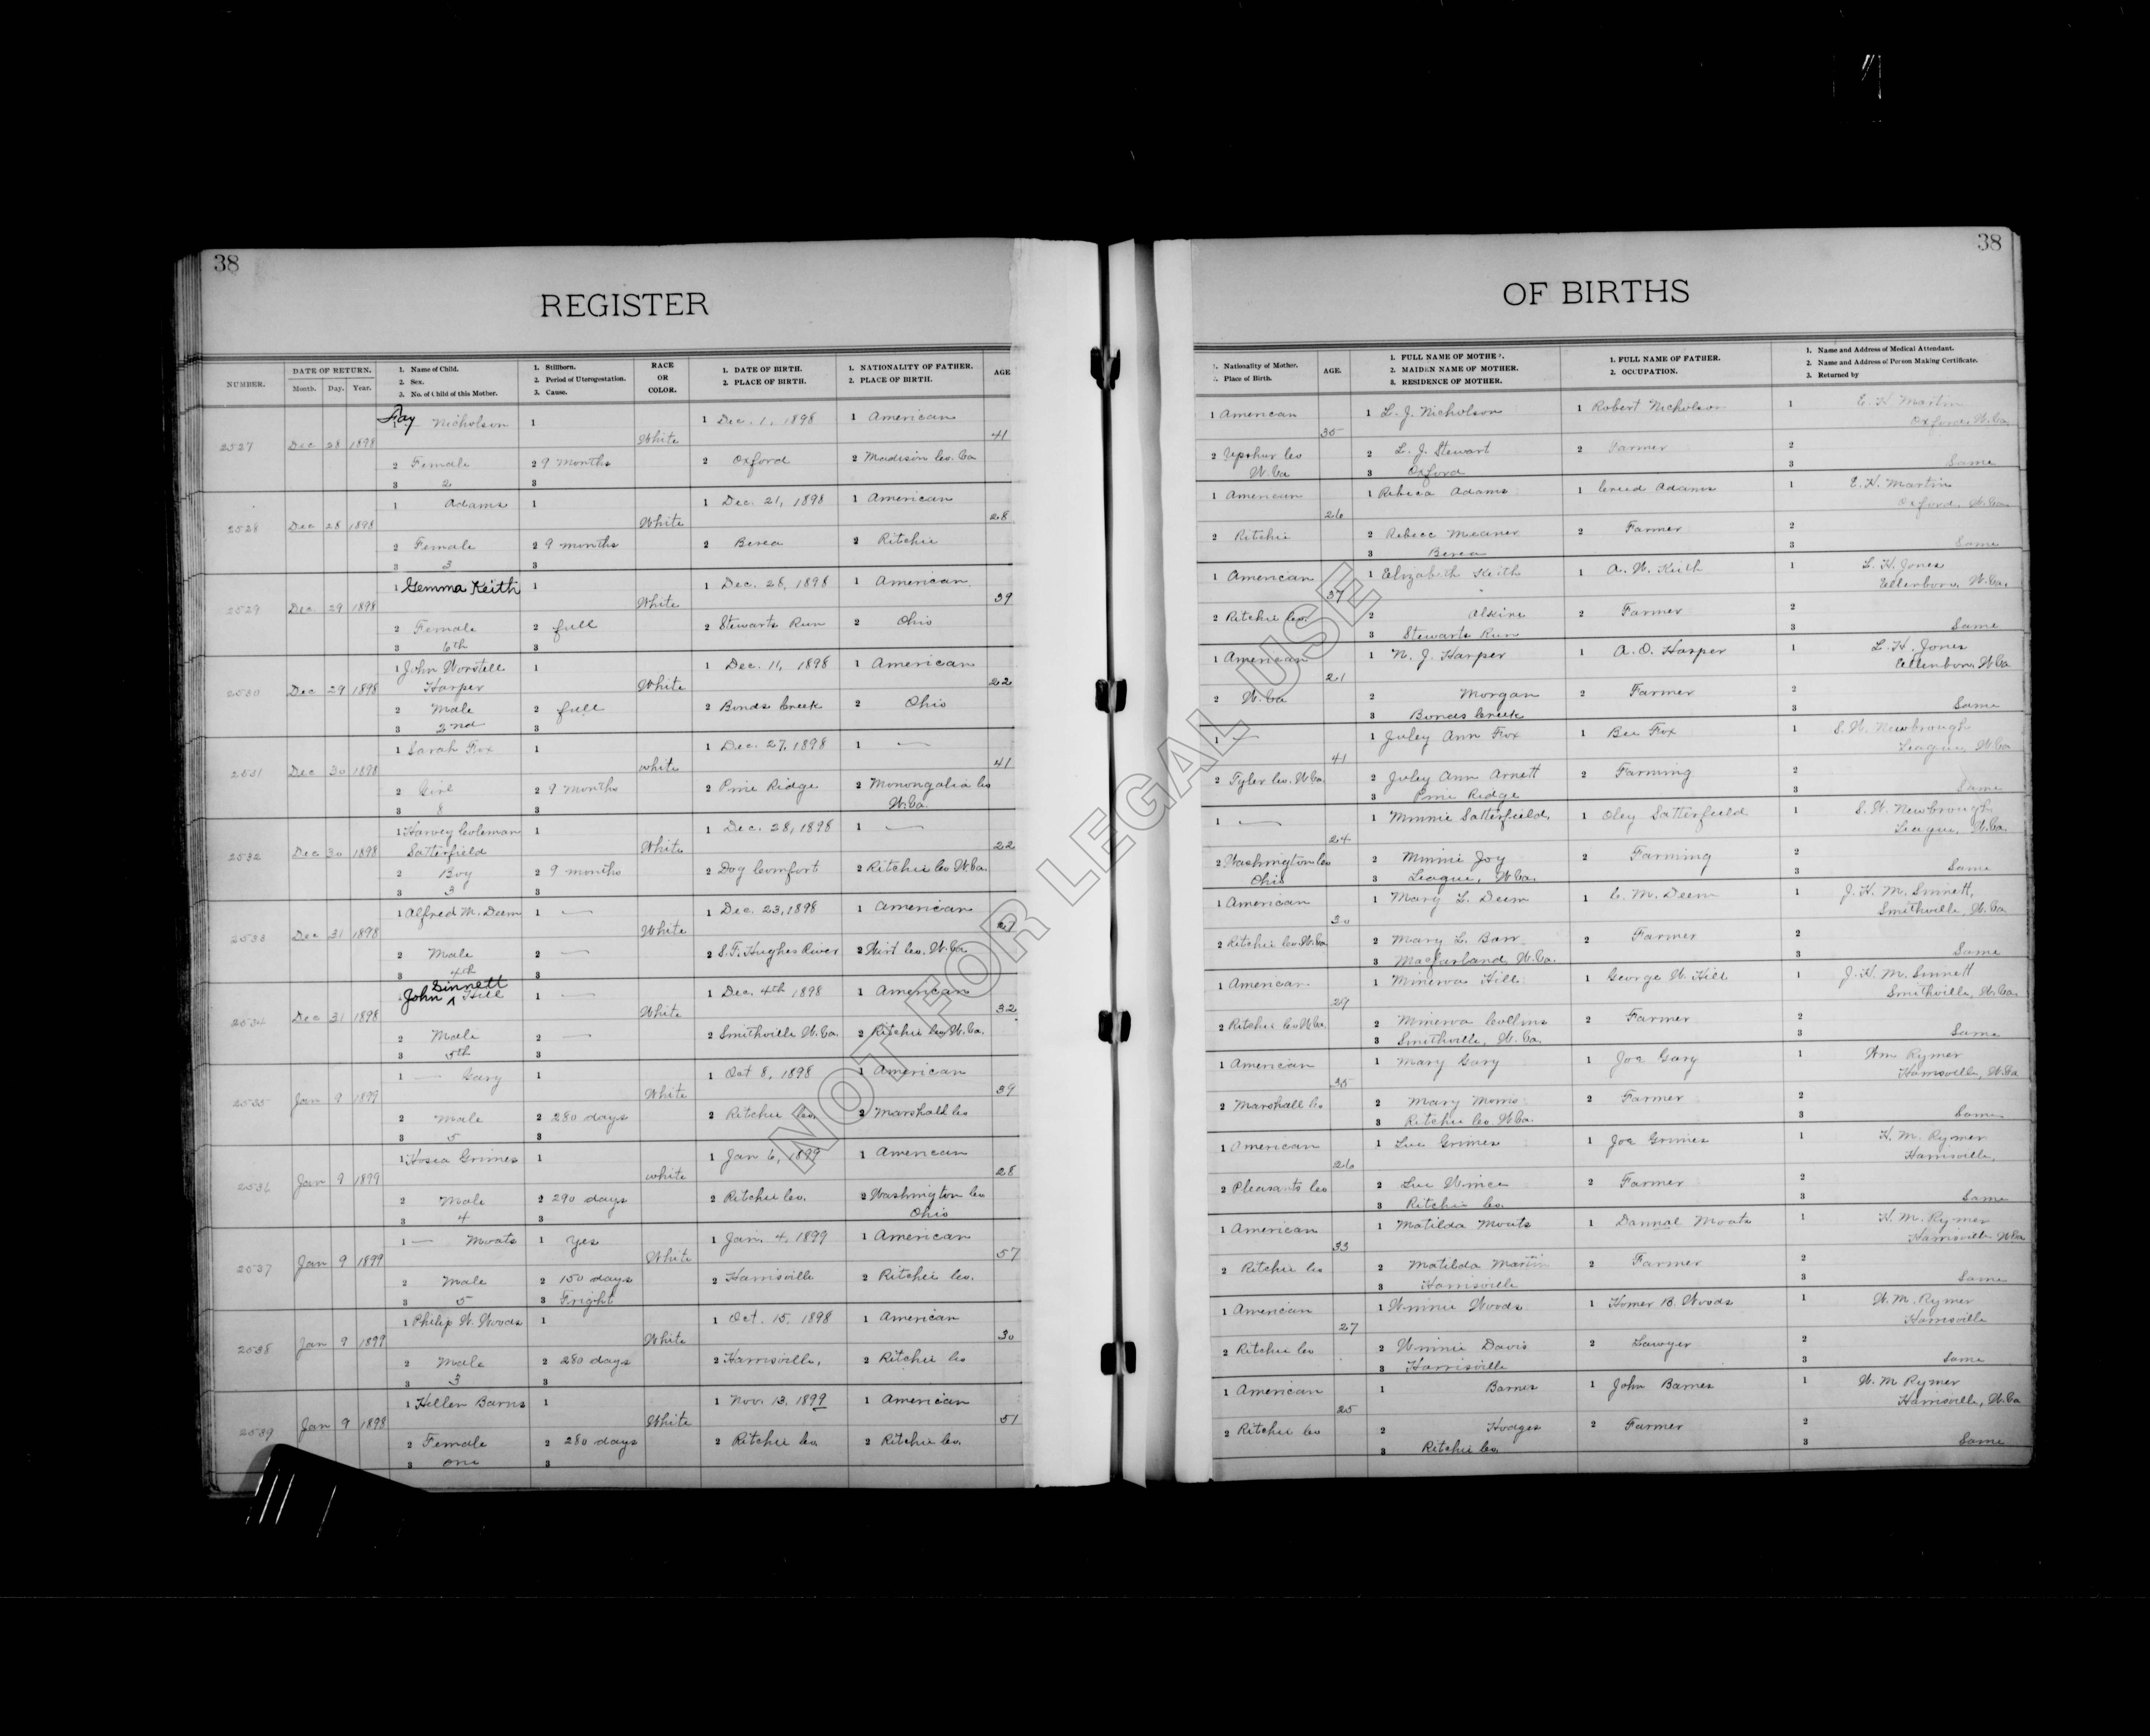 38
REGISTER
NUMBER.
DATE OF RETURN.
Month. Day. Year.
1. Name of Child.
2. Sex.
3. No. of Child of this Mother.
1. Stillborn.
2. Period of Uterogestation.
3. Cause.
RACE
OR
COLOR.
1. DATE OF BIRTH.
2. PLACE OF BIRTH.
1. NATIONALITY OF FATHER.
2. PLACE OF BIRTH.
AGE
Fay
1 Nicholson 1 1 Dec. 1, 1898 1 American
2527 Dec 28 1898 White 41
2 Female 2 9 months 2 Oxford 2 Madison Co. Va
3 2 3
1 Adams 1 1 Dec. 21, 1898 1 American
2528 Dec 28 1898 White 28
2 Female 2 9 months 2 Berea 2 Ritchie
3 3 3
1 Gemma Keith 1 1 Dec. 28, 1898 1 American
2529 Dec 29 1898 White 39
2 Female 2 full 2 Stewarts Run 2 Ohio
3 6th 3
1 John Worstell 1 1 Dec. 11, 1898 1 American
Harper
2530 Dec 29 1898 White 22
2 Male 2 full 2 Bonds Creek 2 Ohio
3 2nd 3
1 Sarah Fox 1 1 Dec. 27, 1898 1 —
2531 Dec 30 1898 white 41
2 Girl 2 9 months 2 Pine Ridge 2 Monongalia Co
W.Va.
3 8 3
1 Harvey Coleman 1 1 Dec. 28, 1898 1 —
Satterfield
2532 Dec 30 1898 White 22
2 Boy 2 9 months 2 Dog Comfort 2 Ritchie Co W.Va.
3 3 3
1 Alfred M. Deem 1 — 1 Dec. 23, 1898 1 American
2533 Dec 31 1898 White 27
2 Male 2 — 2 S.F. Hughes River 2 Wirt Co. W.Va.
3 4th 3
Sinnett
John ^ Hill 1 — 1 Dec. 4th 1898 1 American
2534 Dec 31 1898 White 32
2 Male 2 — 2 Smithville W.Va. 2 Ritchie Co W.Va.
3 5th 3
1 — Gary 1 1 Oct 8, 1898 1 American
2535 Jan 9 1899 White 39
2 Male 2 280 days 2 Ritchie Co. 2 Marshall Co
3 5 3
1 Hosea Grimes 1 1 Jan 6, 1899 1 American
2536 Jan 9 1899 white 28
2 Male 2 290 days 2 Ritchie Co. 2 Washington Co
Ohio
3 4 3
1 — Moats 1 Yes 1 Jan. 4, 1899 1 American
2537 Jan 9 1899 White 57
2 Male 2 150 days 2 Harrisville 2 Ritchie Co.
3 5 3 Fright
1 Philip W. Woods 1 1 Oct. 15, 1898 1 American
2538 Jan 9 1899 White 30
2 Male 2 280 days 2 Harrisville, 2 Ritchie Co
3 3 3
1 Hellen Barns 1 1 Nov. 13, 1899 1 American
2539 Jan 9 1898 White 51
2 Female 2 280 days 2 Ritchie Co. 2 Ritchie Co.
3 one 3
38
OF BIRTHS
1. Nationality of Mother.
2. Place of Birth.
AGE.
1. FULL NAME OF MOTHER.
2. MAIDEN NAME OF MOTHER.
3. RESIDENCE OF MOTHER.
1. FULL NAME OF FATHER.
2. OCCUPATION.
1. Name and Address of Medical Attendant.
2. Name and Address of Person Making Certificate.
3. Returned by
1 American 1 L. J. Nicholson 1 Robert Nicholson 1 E. H. Martin
Oxford, W.Va.
35
2 Upshur Co 2 L. J. Stewart 2 Farmer 2
W.Va 3 Oxford 3 Same
1 American 1 Rebeca Adams 1 Creed Adams 1 E. H. Martin
Oxford, W.Va.
26
2 Ritchie 2 Rebecc Meaner 2 Farmer 2
3 Berea 3 Same
1 American 1 Elizabeth Keith 1 A. W. Keith 1 L. H. Jones
Ellenboro, W.Va.
37
2 Ritchie Co. 2 Alkire 2 Farmer 2
3 Stewarts Run 3 Same
1 American 1 N. J. Harper 1 A. O. Harper 1 L. H. Jones
Ellenboro, W.Va
21
2 W.Va 2 Morgan 2 Farmer 2
3 Bonds Creek 3 Same
1 — 1 Juley Ann Fox 1 Bee Fox 1 S. W. Newbrough
League, W.Va
41
2 Tyler Co. W.Va. 2 Juley Ann Arnett 2 Farming 2
3 Pine Ridge 3 Same
1 — 1 Minnie Satterfield 1 Oley Satterfield 1 S. W. Newbrough
League, W.Va.
24
2 Washington Co 2 Minnie Joy 2 Farming 2
Ohio 3 League, W.Va. 3 Same
1 American 1 Mary L. Deem 1 C. M. Deem 1 J. H. M. Sinnett,
Smithville, W.Va.
30
2 Ritchie Co W.Va. 2 Mary L. Barr 2 Farmer 2
3 Macfarland, W.Va. 3 Same
1 American 1 Minerva Hill 1 George W. Hill 1 J. H. M. Sinnett
Smithville, W.Va.
29
2 Ritchie Co W.Va. 2 Minerva Collins 2 Farmer 2
3 Smithville, W.Va. 3 Same
1 American 1 Mary Gary 1 Joe Gary 1 Wm Rymer
Harrisville, W.Va
35
2 Marshall Co 2 Mary Morris 2 Farmer 2
3 Ritchie Co W.Va. 3 Same
1 American 1 Lue Grimes 1 Joe Grimes 1 H. M. Rymer
Harrisville,
26
2 Pleasants Co 2 Lue Wince 2 Farmer 2
3 Ritchie Co. 3 Same
1 American 1 Matilda Moats 1 Dannal Moats 1 H. M. Rymer
Harrisville W.Va
33
2 Ritchie Co 2 Matilda Martin 2 Farmer 2
3 Harrisville 3 Same
1 American 1 Winnie Woods 1 Homer B. Woods 1 W. M. Rymer
Harrisville
27
2 Ritchie Co 2 Winnie Davis 2 Lawyer 2
3 Harrisville 3 Same
1 American 1 Barnes 1 John Barnes 1 W. M Rymer
Harrisville, W.Va
25
2 Ritchie Co 2 Hodges 2 Farmer 2
3 Ritchie Co. 3 Same
NOT FOR LEGAL USE